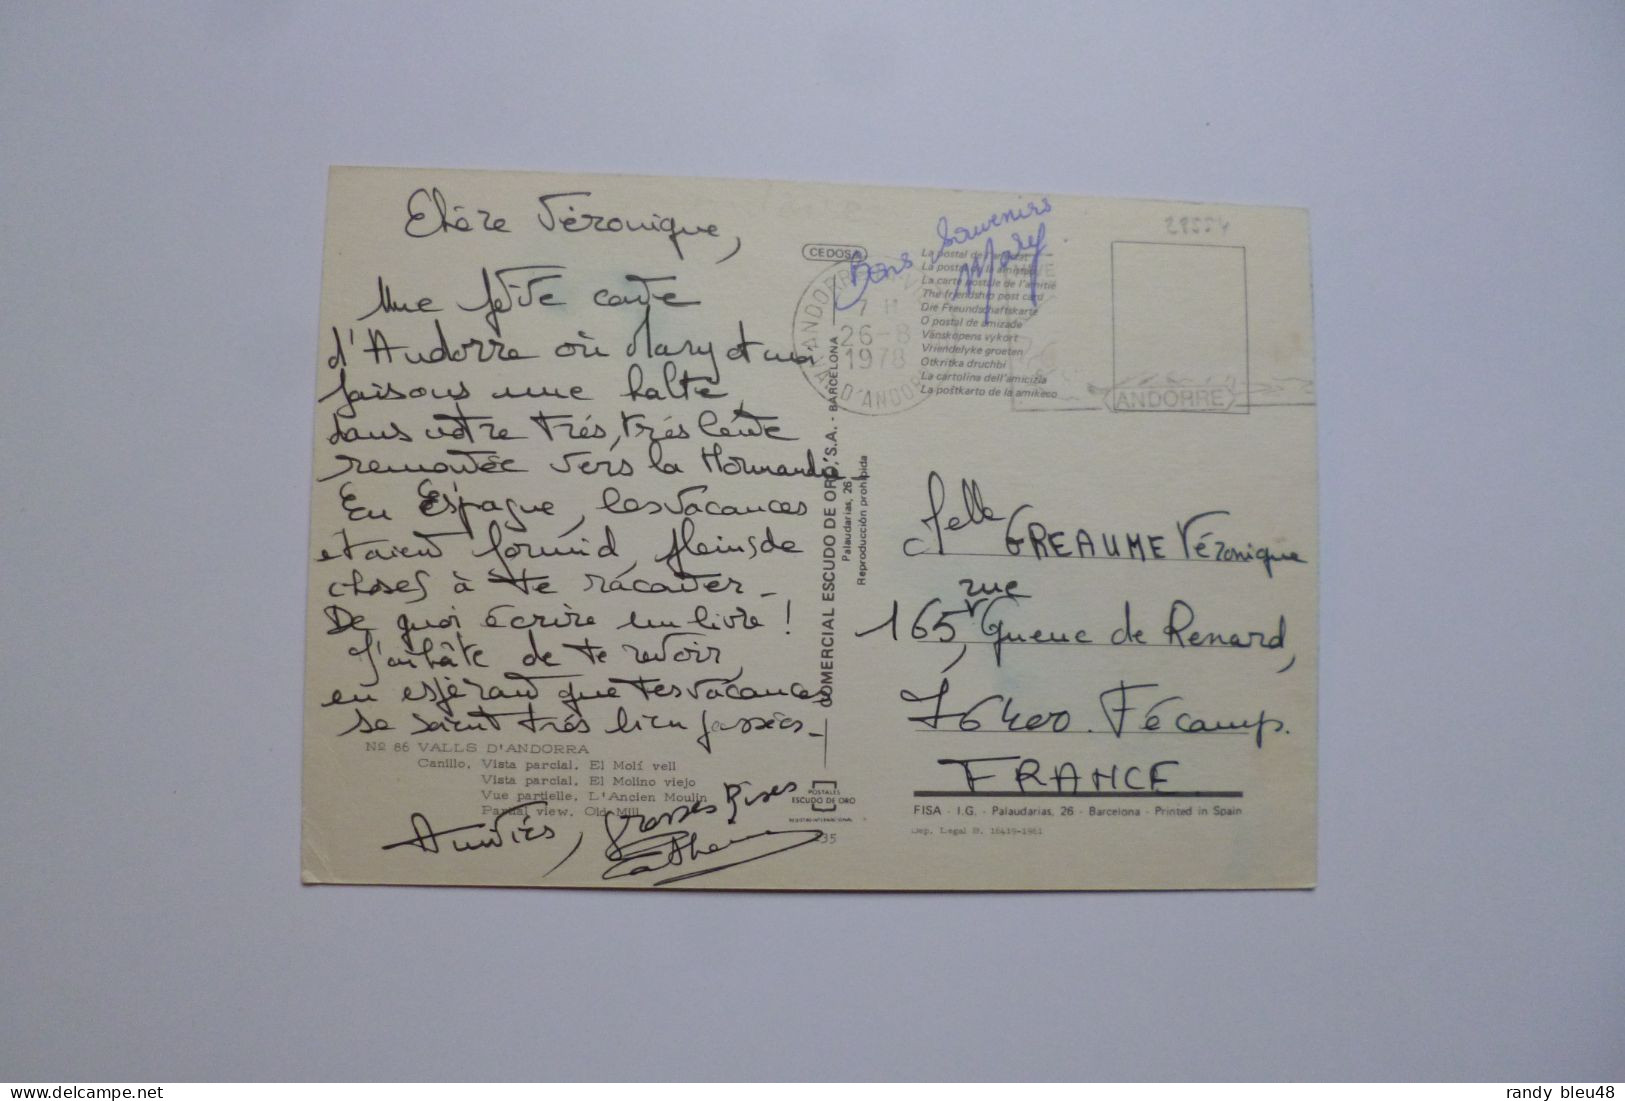 Chère Véronique,
Une petite carte
d'Andorre où Mary et moi
faisons une halte,
dans notre très, très lente
remontée vers la Normandie.
En Espagne, les vacances
étaient formid, pleins de
choses à te raconter -
De quoi écrire un livre !
J'ai hâte de te revoir,
en espérant que tes vacances
se soient très bien passées -
Nº 86 VALLS D'ANDORRA
Canillo. Vista parcial. El Molí vell
Vista parcial. El Molino viejo
Vue partielle. L'Ancien Moulin
Partial view. Old Mill
Amitiés, grosses Bises
CEDOSA
Bons Souvenirs
Mary.
28554
ANDORRE
7 H
26-8
1978
D'ANDORRE
La carte postale de l'amitié
The friendship post card
Die Freundschaftskarte
O postal de amizade
Vänskapens vykort
Vriendelyke groeten
Otkritka druchbi
La cartolina dell'amicizia
La poŝtkarto de la amikeco
ANDORRE
COMERCIAL ESCUDO DE ORO, S.A. - BARCELONA
Palaudarias, 26
Reproducción prohibida
Melle GREAUME Véronique
165, rue Queue de Renard,
76400 Fécamp.
FRANCE
POSTALES
ESCUDO DE ORO
235
FISA - I.G. - Palaudarias, 26 - Barcelona - Printed in Spain
Dep. Legal B. 16419-1961
randy bleu48